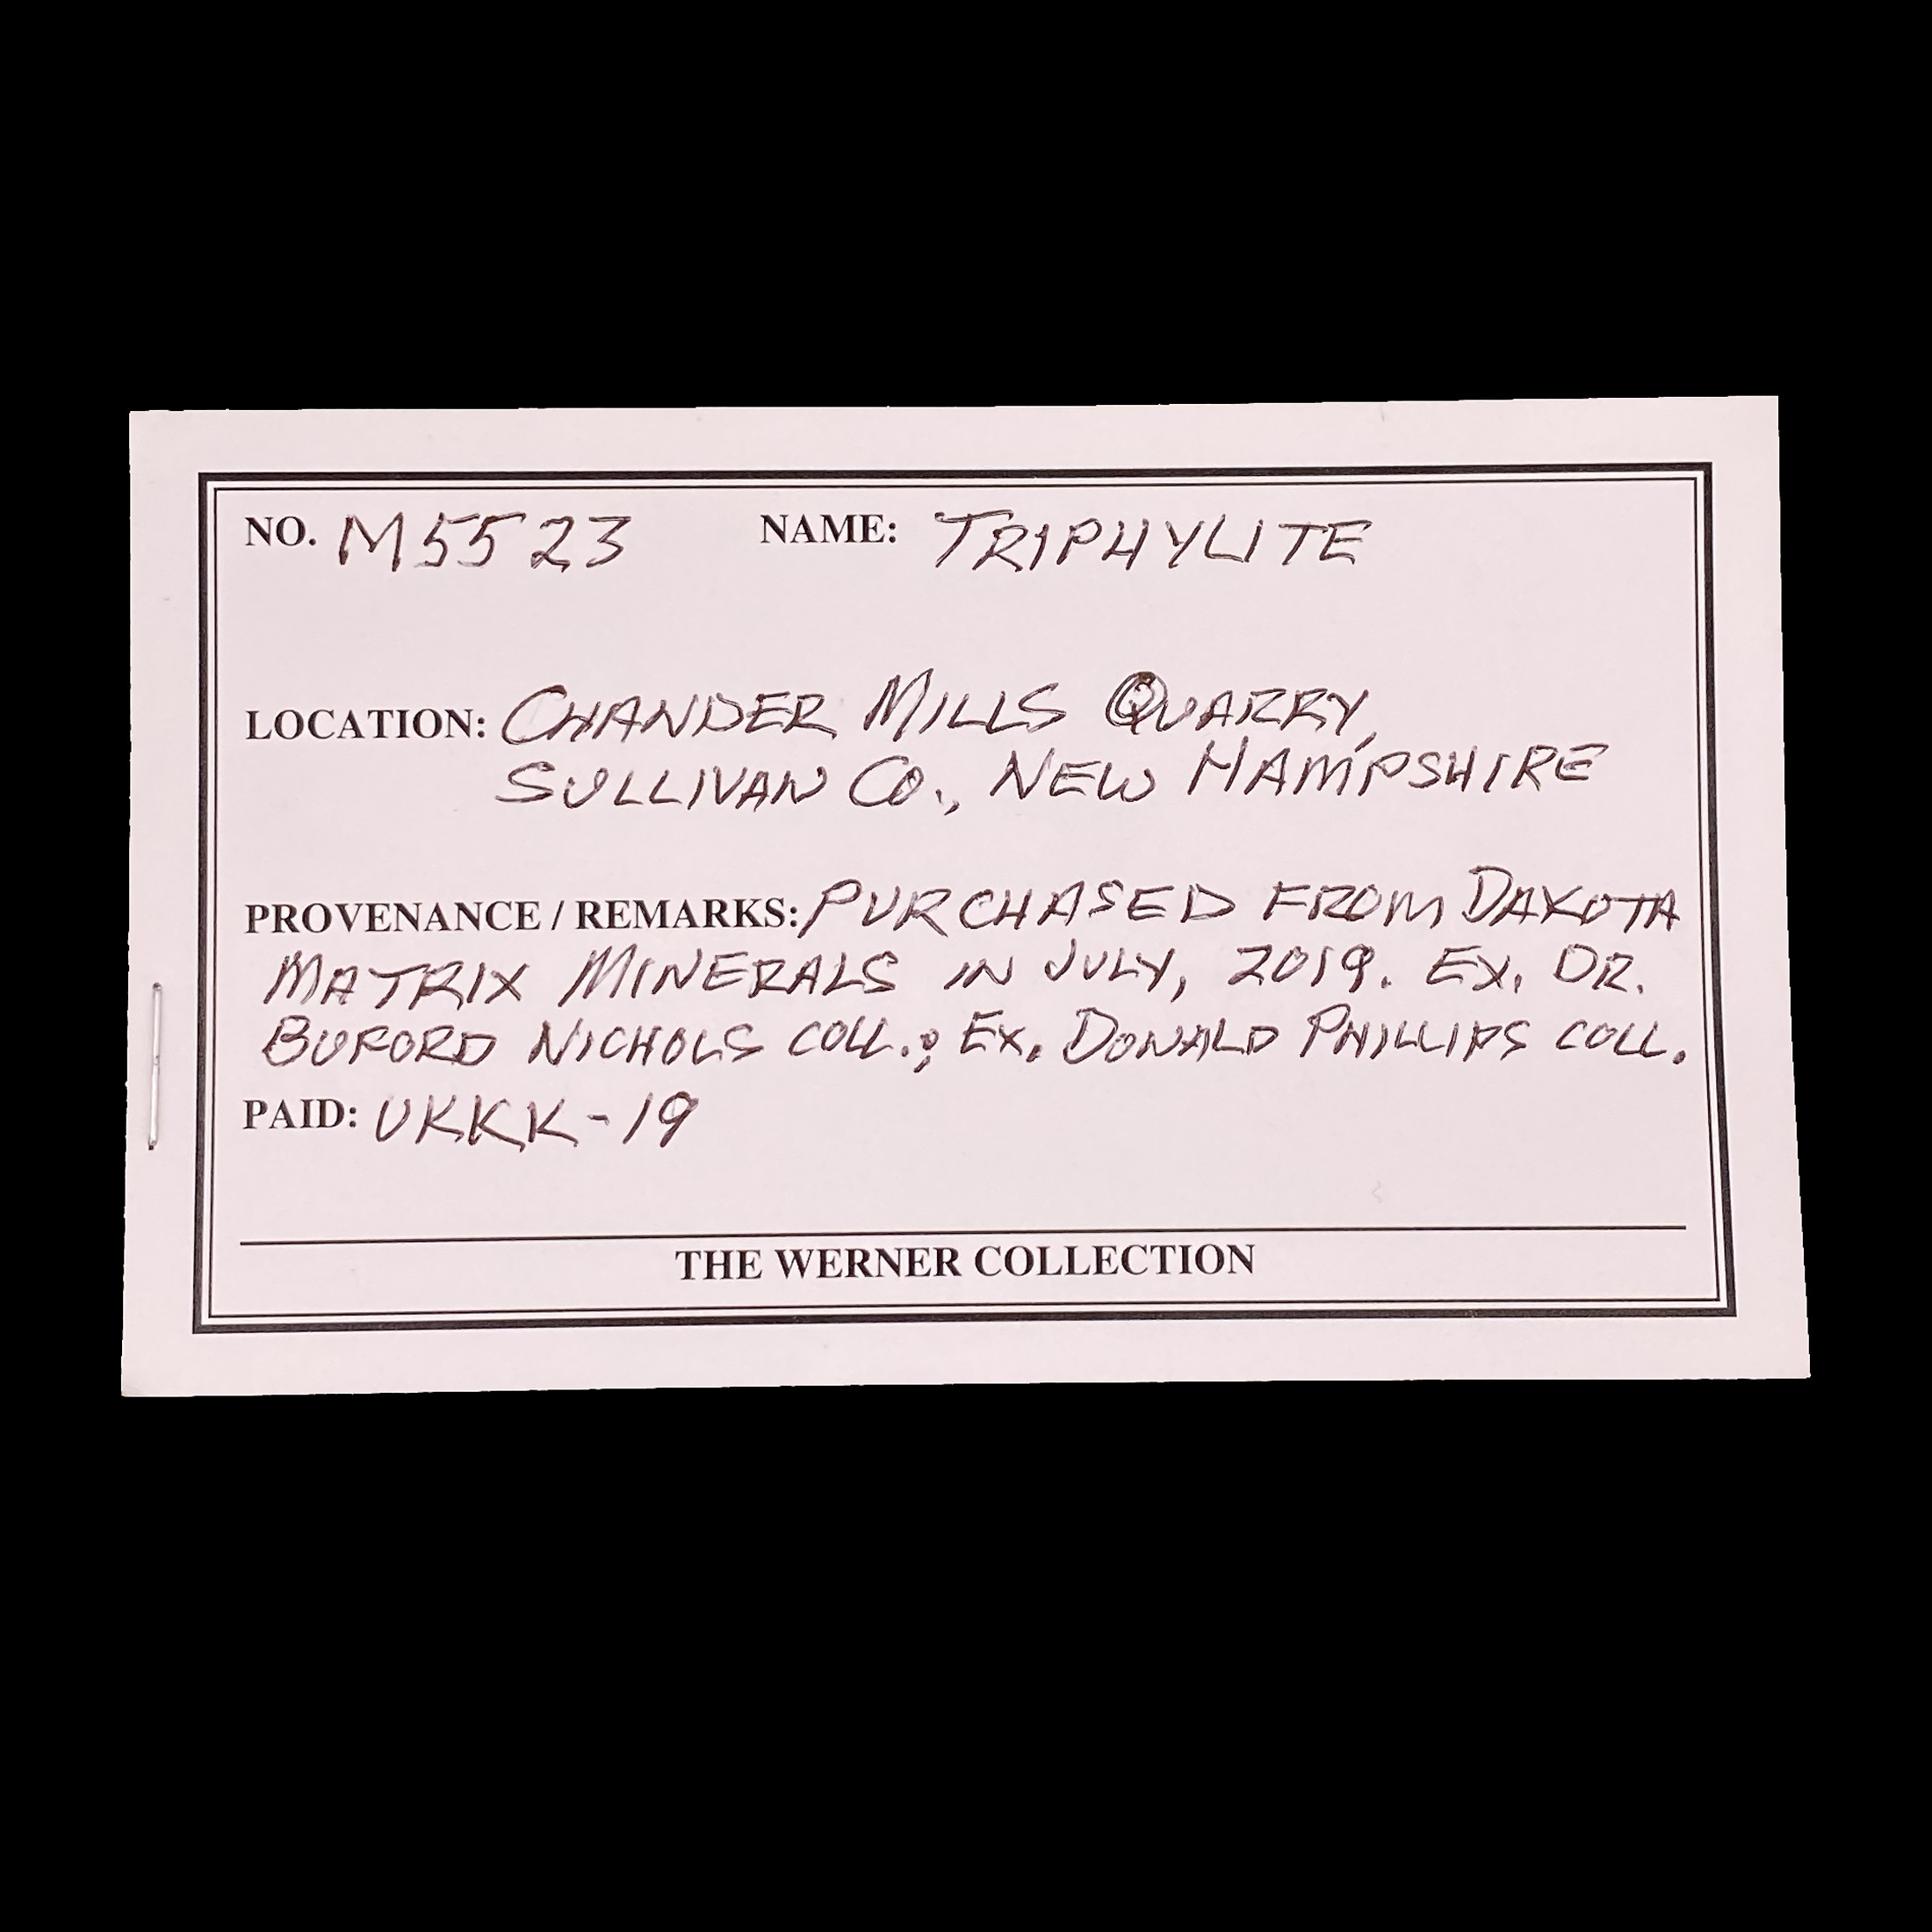 NO. M5523 NAME: TRIPHYLITE
LOCATION: CHANDER MILLS QUARRY,
SULLIVAN CO., NEW HAMPSHIRE
PROVENANCE / REMARKS: PURCHASED FROM DAKOTA
MATRIX MINERALS IN JULY, 2019. EX. DR.
BUFORD NICHOLS COLL.; EX. DONALD PHILLIPS COLL.
PAID: UKKK-19
THE WERNER COLLECTION